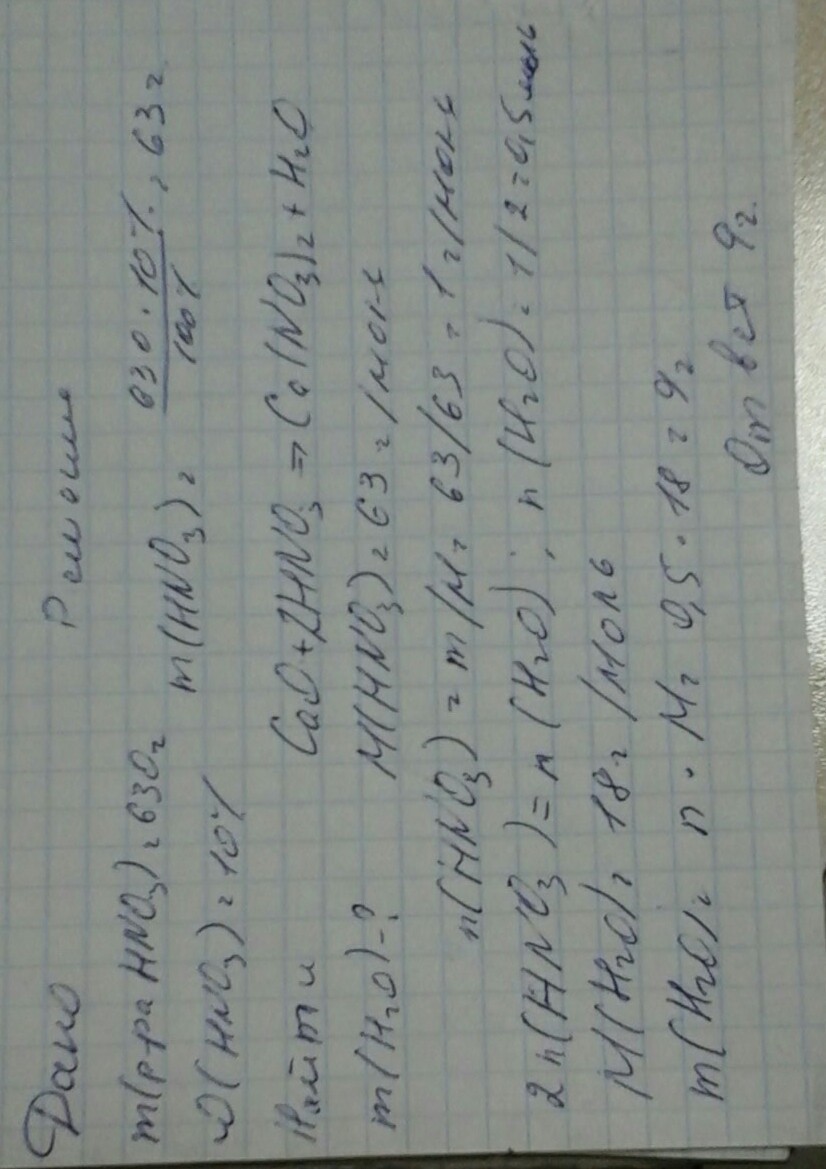 Дано Решение
m(р-ра HNO₃) = 630г m(HNO₃) = 630 · 10% / 100% = 63г
ω(HNO₃) = 10%
Найти CaO + 2HNO₃ => Ca(NO₃)₂ + H₂O
m(H₂O) - ? M(HNO₃) = 63 г/моль
n(HNO₃) = m/M = 63/63 = 1 г/моль
2n(HNO₃) = n(H₂O); n(H₂O) = 1/2 = 0,5 моль
M(H₂O) = 18 г/моль
m(H₂O) = n · M = 0,5 · 18 = 9г
Ответ 9г.